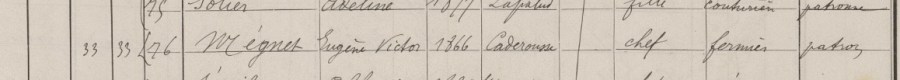 75 Solier Adeline 1877 Lapalud fille couturière patronne
33 33 76 Mégnet Eugène Victor 1866 Caderousse chef fermier patron